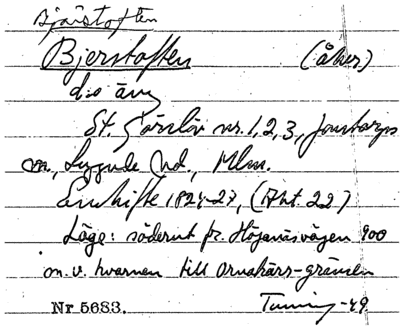 Bjärstoften
Bjerstoften (åker)
d:o äng
St. Görslöv nr. 1, 2, 3, Jonstorps
sn., Luggude hd., Mlm.
Enskifte 1824-27, (Akt. 22)
Läge: söderut fr. Höganäsvägen 900
m. v. kvarnen till Ornakärr-gränsen
Nr 5683. Tuning -49.